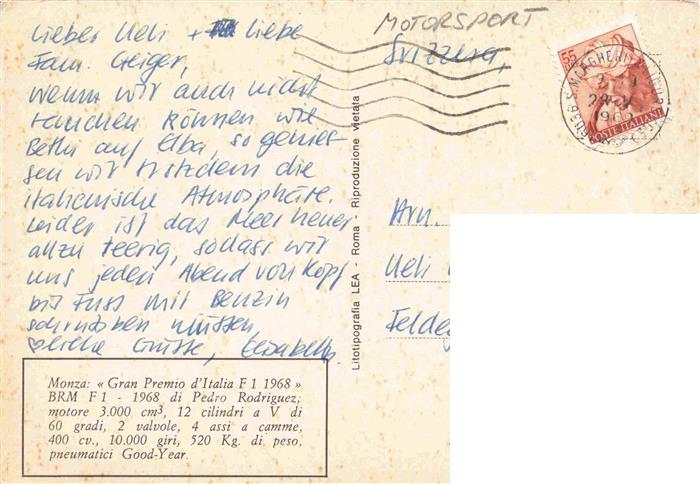 Lieber Ueli + liebe
Fam. Geiger,
wenn wir auch nicht
tauchen können wie
Bethi auf Elba, so genies-
sen wir trotzdem die
italienische Atmosphäre.
Leider ist das Meer heuer
allzu teerig, sodass wir
uns jeden Abend von Kopf
bis Fuss mit Benzin
schrubben müssen
Liebe Grüsse, Elisabeth
MOTORSPORT
Svizzera,
55
POSTE ITALIANE
Arn.
Ueli
Felde
Litotipografia LEA - Roma - Riproduzione vietata
Monza: « Gran Premio d'Italia F 1 1968 »
BRM F 1 - 1968 di Pedro Rodriguez;
motore 3.000 cm³, 12 cilindri a V di
60 gradi, 2 valvole, 4 assi a camme,
400 cv., 10.000 giri, 520 Kg. di peso,
pneumatici Good-Year.